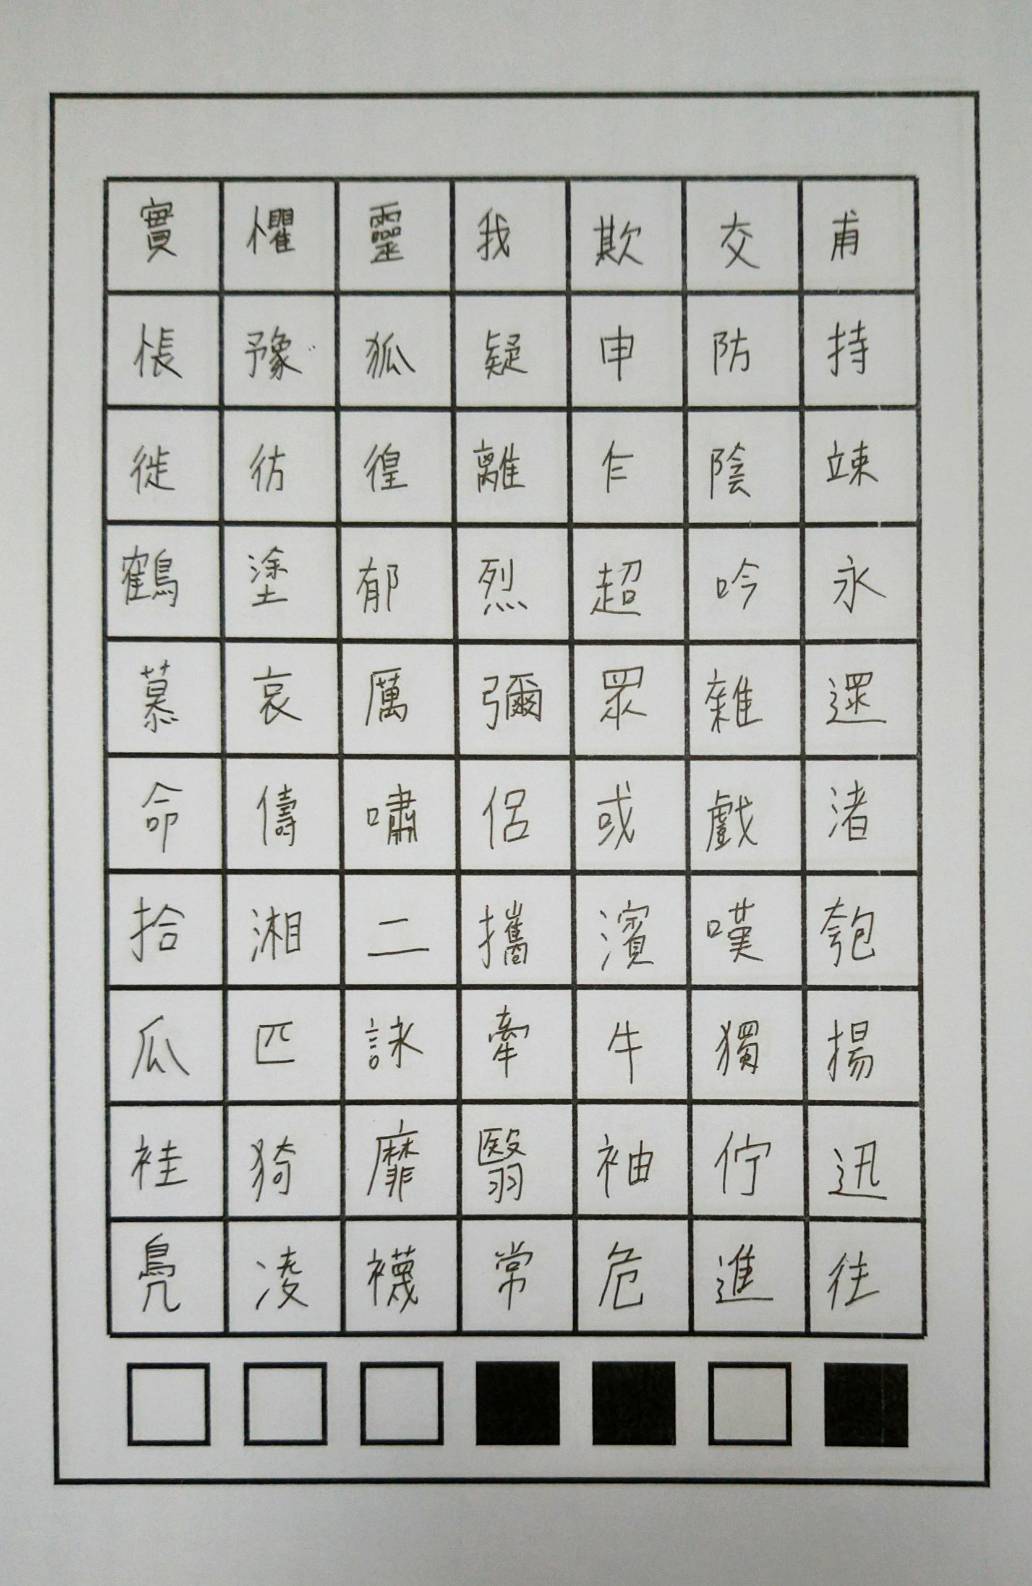 實懼靈我欺交甫
悵豫狐疑申防持
徙彷徨離乍陰竦
鶴塗郁烈超吟永
慕哀厲彌眾雜遝
命儔嘯侶或戲渚
拾湘二攜濱嘆匏
瓜匹詠牽牛獨揚
袿猗靡翳袖佇迅
鳧凌襪常危進往